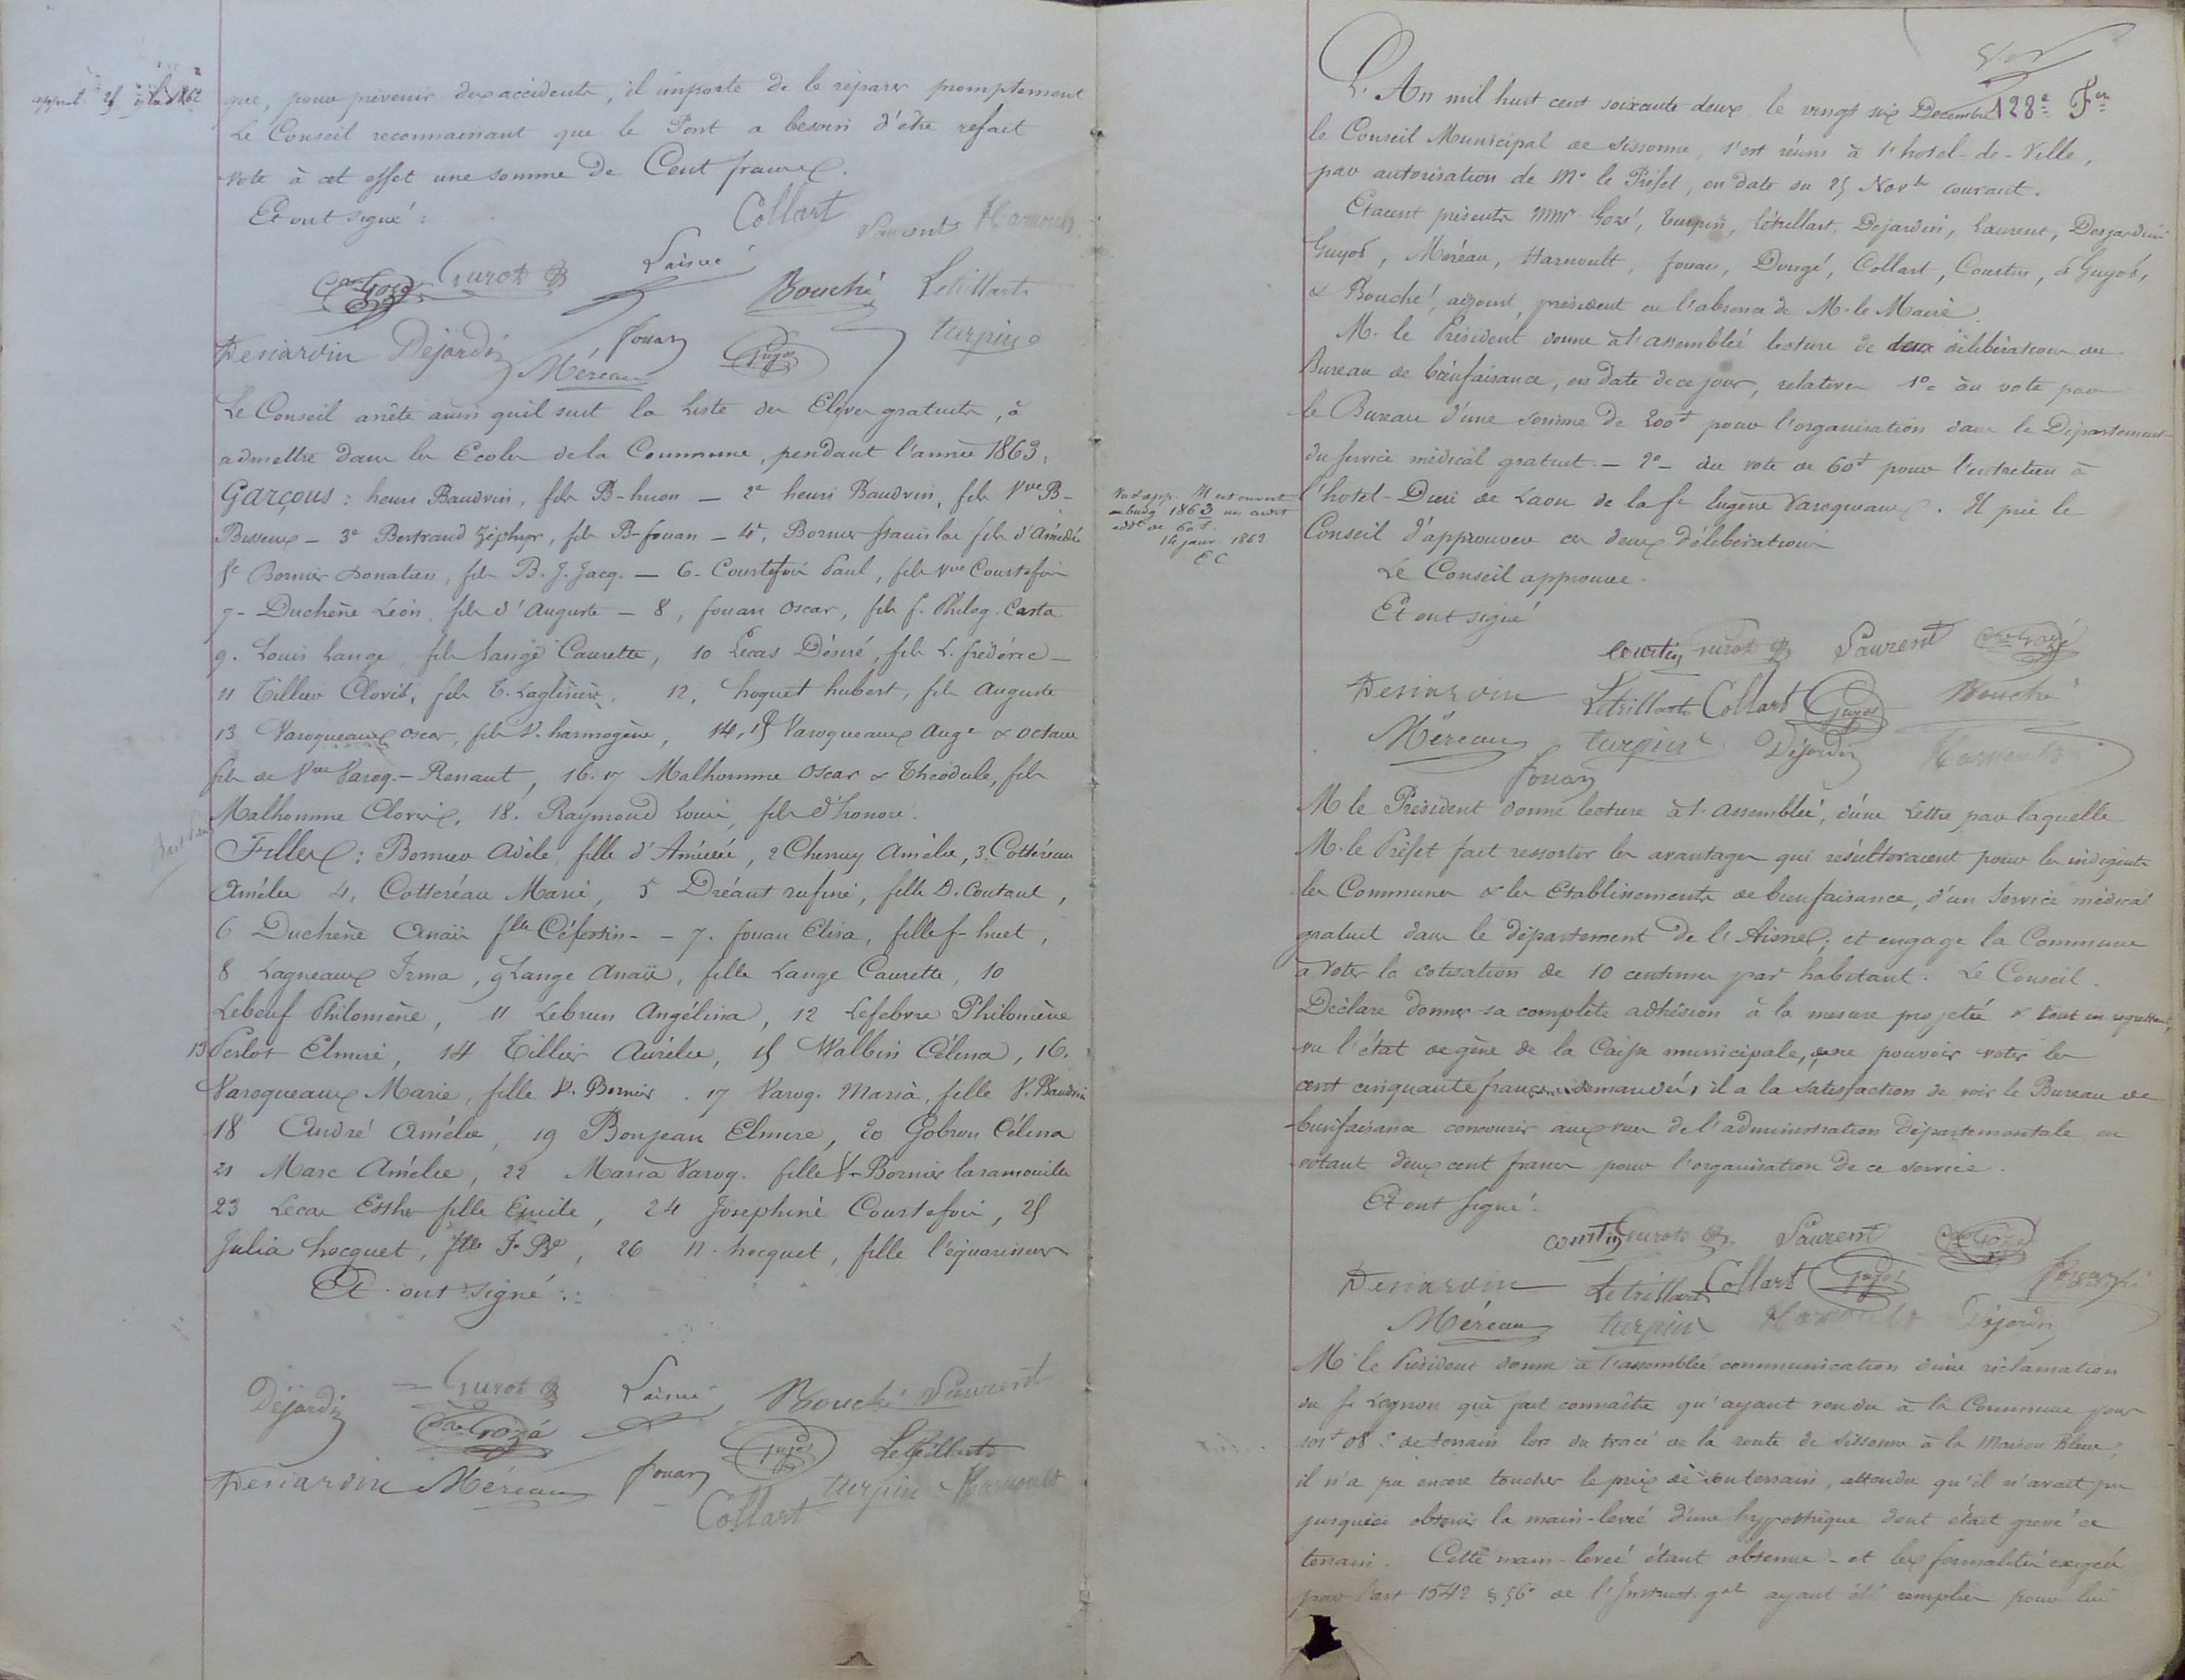 que, pour prévenir des accidents, il importe de le réparer promptement
Le Conseil reconnaissant que le Pont a besoin d'être refait
vote à cet effet une somme de Cent francs.
Et ont signé :
Collart Laurent Harnoult
Gozé Gurot Lainé Bouché Letrillart
Desjardin Dejardin Méreau fouan Guyot turpin
Le Conseil arrête ainsi qu'il suit la Liste des Elèves gratuits, à
admettre dans les Ecoles de la Commune, pendant l'année 1863.
Garçons : henri Baudvin, fils B-huon — 2e henri Baudvin, fils Vve B-
Busseux — 3e Bertrand Zéphyr, fils B-fouan — 4e, Bornier stanislas fils d'Amédée
5e Bornier Donatien, fils B. J. Jacq. — 6- Courtefoix Paul, fils Vve Courtefoix
7- Duchêne Léon, fils d'Auguste — 8, fouan Oscar, fils f. Philog. Casta
9. Louis Lange, fils Lange Caurette, 10 Lecas Désiré, fils L. frédéric —
11 Tillier Clovis, fils T. Laglisière, 12, hoquet hubert, fils Auguste
13 Varoqueaux Oscar, fils V. harmogène, 14, 15 Varoqueaux Auge & Octave
fils de Vve Varoq.- Renaut, 16. 17 Malhomme Oscar & Théodule, fils
Malhomme Clovis, 18. Raymond Louis, fils d'honoré.
Filles : Bornier Adèle, fille d'Amédée, 2 Chenuy Amélie, 3. Cottereau
Amélie 4, Cottereau Marie, 5 Dréant rufine, fille D. Coutant,
6 Duchêne Anaïs flle Céfestin- — 7. fouan Elisa, fille f- huet,
8 Lagneaux Irma, 9 Lange Anaïs, fille Lange Caurette, 10
Lebeuf Philomène, 11 Lebrun Angélina, 12 Lefebvre Philomène
13 Perlot Elmire, 14 Tillier Aurélie, 15 Walbin Célina, 16.
Varoqueaux Marie, fille V. Bornier. 17 Varoq. Maria, fille V. Baudvin
18 André Amélie, 19 Bonjean Elmire, 20 Gobron Célina
21 Marc Amélie, 22 Maria Varoq. fille V- Bornier laramouille
23 Lecas Esther fille Emile, 24 Joséphine Courtefoix, 25
Julia hocquet, flle J. Bte, 26 N. hocquet, fille l'équarisseur
Et ont signé :
Déjardin Gurot Lainé Bouché Laurent
Gozé Guyot Letrillart
Desjardin Méreau fouan turpin Harnoult
Collart
128e Fer
L'An mil huit cent soixante deux, le vingt six Décembre
le Conseil Municipal de Sissonne, s'est réuni à l'hotel-de-Ville,
par autorisation de Mr le Préfet, en date du 25 Novbre courant.
Etaient présents MMrs Gozé, Turpin, Létrillart, Dejardin, Laurent, Desjardin
Guyot, Méreau, Harnoult, fouan, Dougé, Collart, Courtin, & Guyot,
& Bouché, adjoint, président en l'absence de M. le Maire.
M. le Président donne à l'assemblée lecture de deux délibérations du
Bureau de bienfaisance, en date de ce jour, relatives 1o= au vote par
le Bureau d'une somme de 200f pour l'organisation dans le Département
du service médical gratuit — 2o- du vote de 60f pour l'entretien à
l'hotel-Dieu de Laon de la fe Eugène Varoqueaux. Il prie le
Conseil d'approuver ces deux délibérations
Vu & app. Il est ouvert
au budg 1863 un crédit
addl de 60f.
14 janv. 1863
EC
Le Conseil approuve.
Et ont signé
Courtin Gurot Laurent Gozé
Desjardin Letrillart Collart Guyot Bouché
Méreau turpin Déjardin Harnoult
fouan
M le Président donne lecture à l'assemblée, d'une Lettre par laquelle
M. le Préfet fait ressortir les avantages qui résulteraient pour les indigents
les Communes & les Etablissements de bienfaisance, d'un Service médical
gratuit dans le département de l'Aisne, et engage la Commune
à voter la cotisation de 10 centimes par habitant. Le Conseil
Déclare donner sa complète adhésion à la mesure projetée & tout en regrettant,
vu l'état de gène de la Caisse municipale, de ne pouvoir voter les
cent cinquante francs demandés, il a la satisfaction de voir le Bureau de
bienfaisance concourir aux vues de l'administration départementale en
votant deux cent francs pour l'organisation de ce service.
Et ont signé.
Courtin Gurot Laurent Gozé
Desjardin Letrillart Collart Guyot
Méreau turpin Harnoult Déjardin
M. le Président donne à l'assemblée communication d'une réclamation
du sr Lagnon qui fait connaître qu'ayant vendu à la Commune pour
101f 08c de terrain lors du tracé de la route de Sissonne à la Maison Bleue,
il n'a pu encore toucher le prix de son terrain, attendu qu'il n'avait pu
jusqu'ici obtenir la main-levée d'une hypothèque dont était grevé ce
terrain. Cette main-levée étant obtenue - et les formalités exigées
par l'art 1542 § 56e de l'Instruct. gale ayant été remplies pour lui